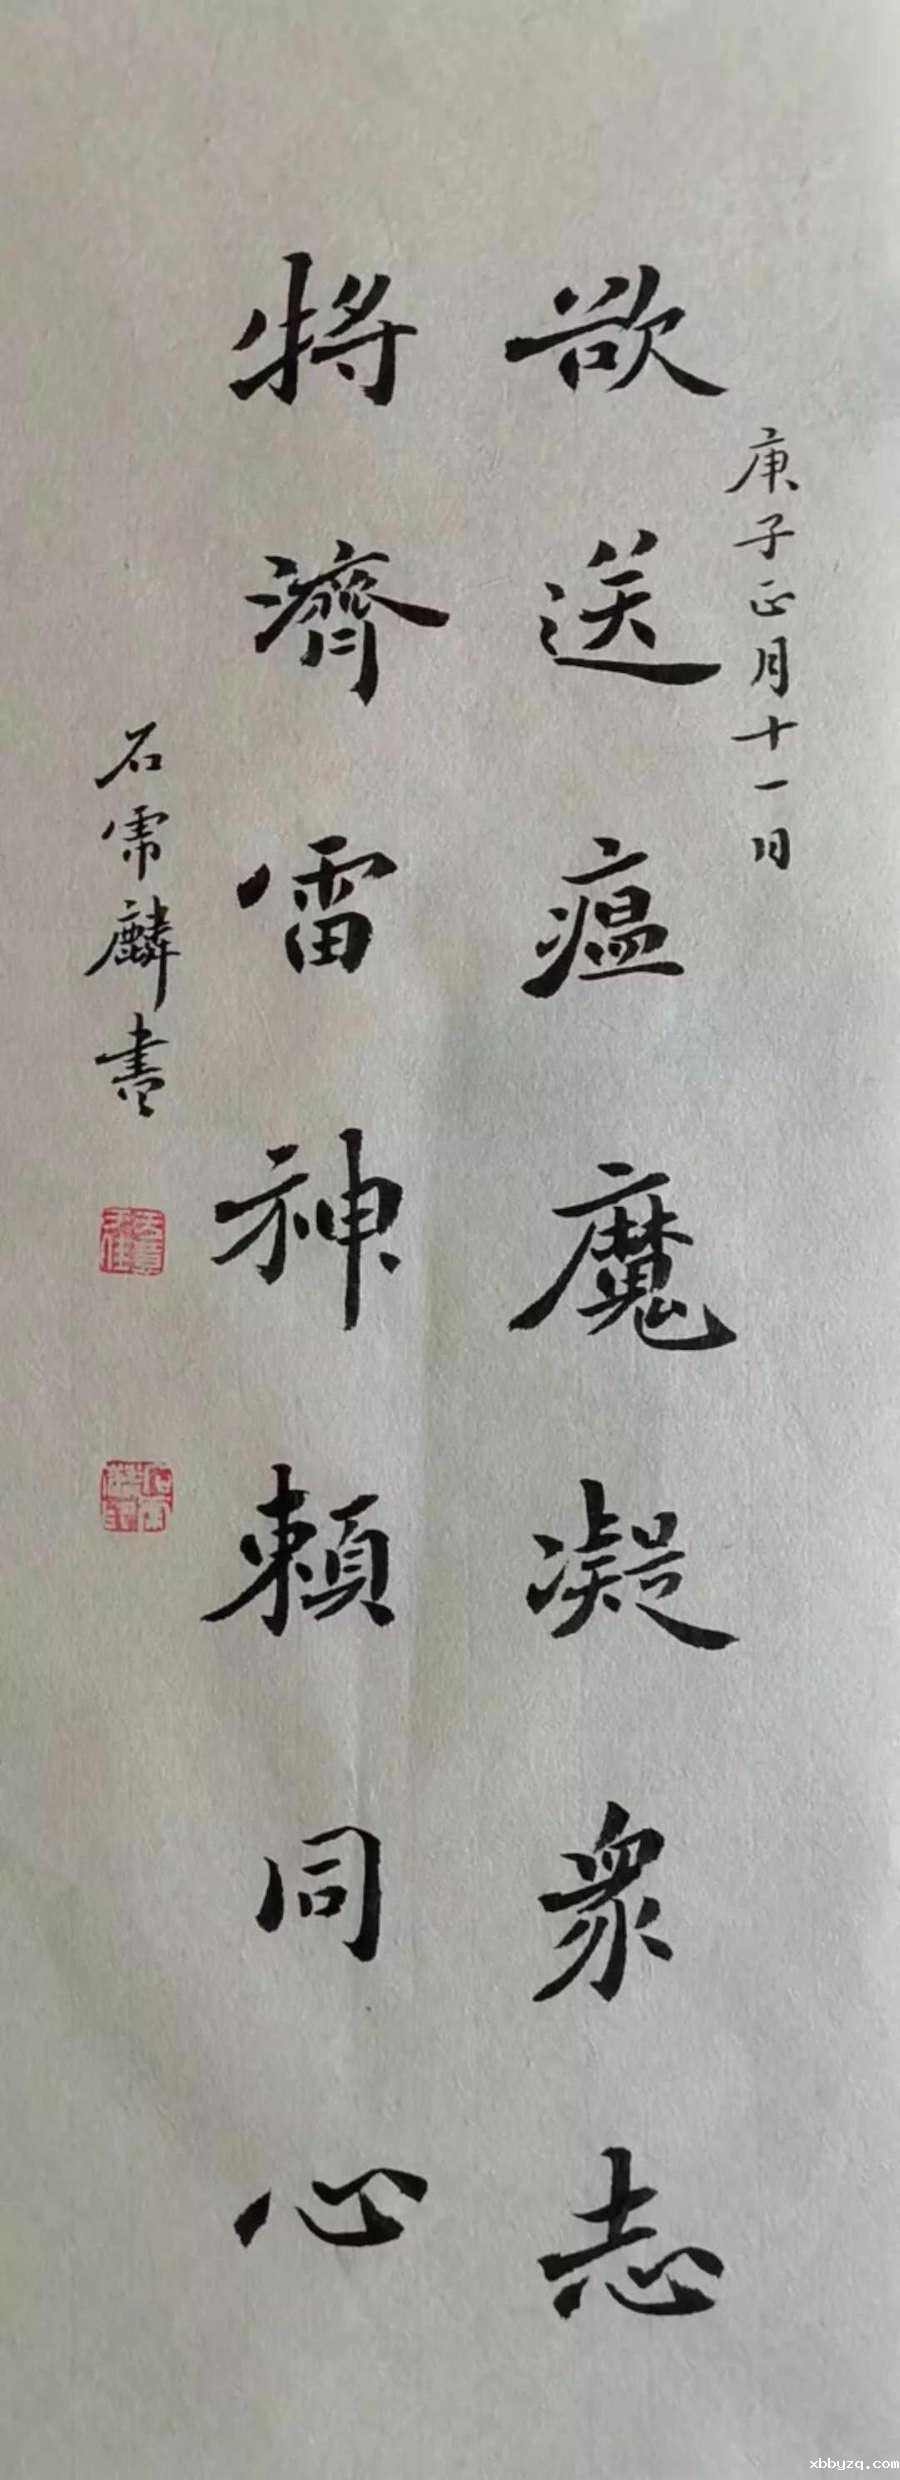 庚子正月十一日
欲送瘟魔凝衆志
將濟雷神賴同心
石霈麟書
xbbyzq.com